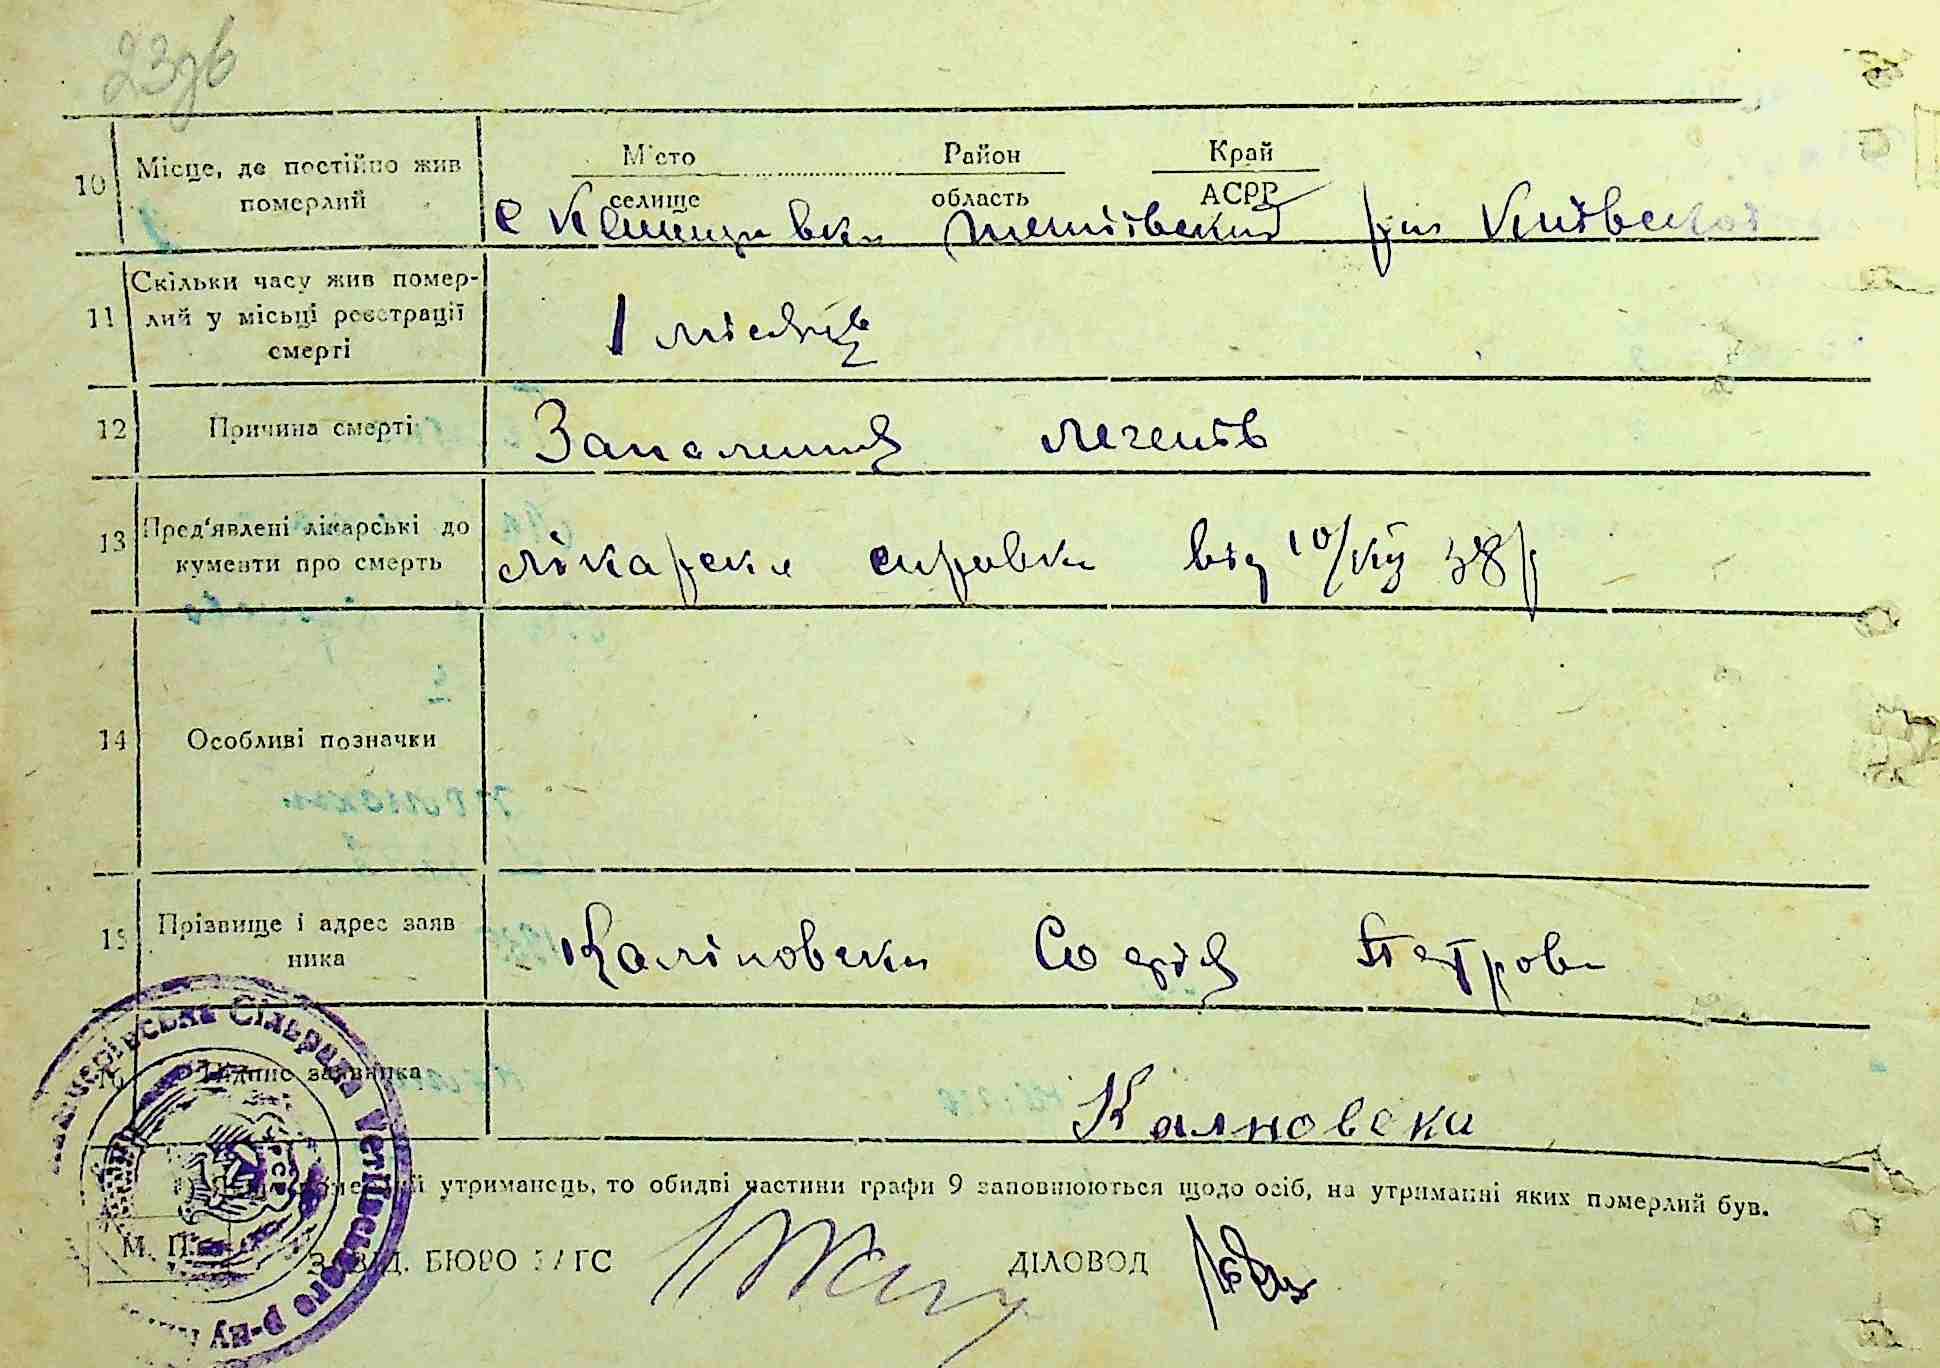 23зв
Місто Район Край
10 Місце, де постійно жив
померлий
селище область АСРР
с Кашперівки тетіівский р-н Київської
11 Скільки часу жив помер-
лий у місьці реєстрації
смерті
1 місяць
12 Причина смерті
Запалиння легенів
13 Пред'явлені лікарські до
кументи про смерть
лікарска справка від 10/ 38 р
14 Особливі позначки
15 Прізвище і адрес заяв
ника
Каліновска Софія Петров
16 Підпис заявника
Калновска
утриманець, то обидві частини графи 9 заповнюються щодо осіб, на утриманні яких померлий був.
М. П. ЗАВІД. БЮРО ЗАГС ДІЛОВОД
Сільрада Тетіївського р-ну
УРСР